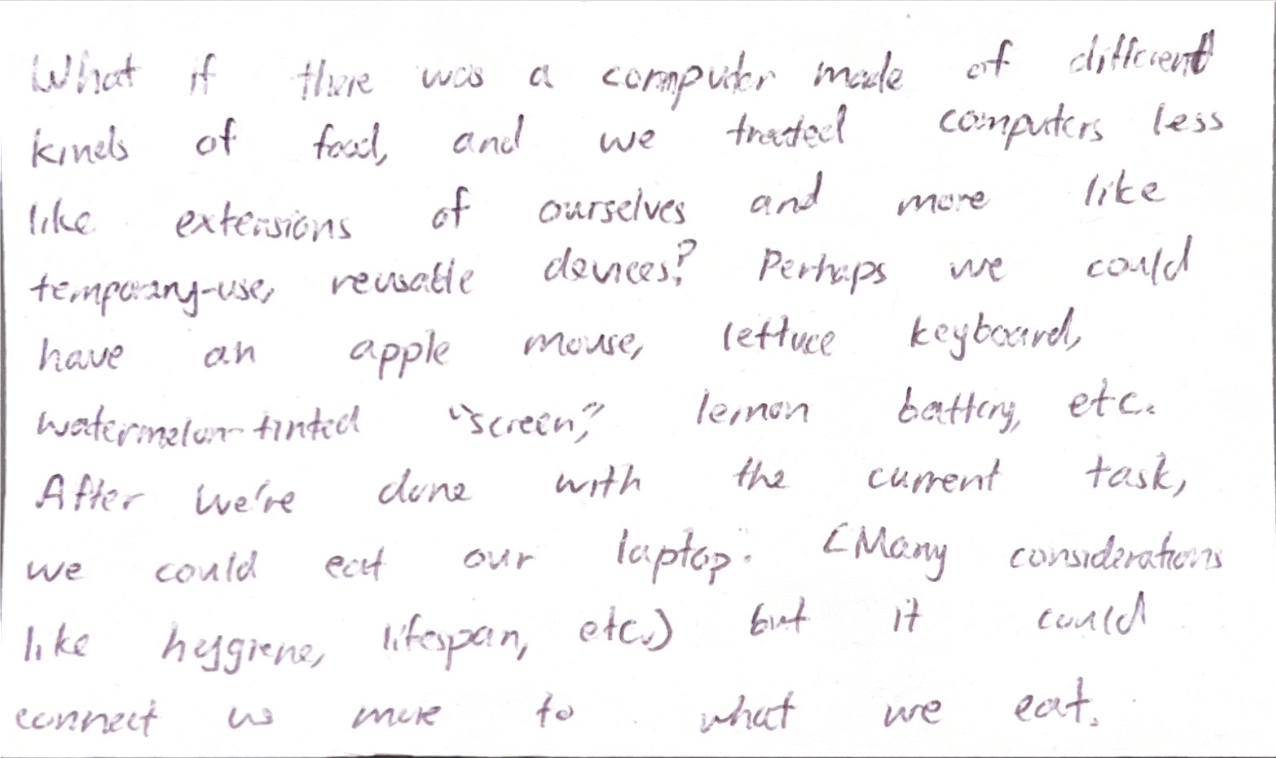 What if there was a computer made of different
kinds of food, and we treated computers less
like extensions of ourselves and more like
temporary-use, reusable devices? Perhaps we could
have an apple mouse, lettuce keyboard,
watermelon-tinted "screen," lemon battery, etc.
After we're done with the current task,
we could eat our laptop. (Many considerations
like hygiene, lifespan, etc.) but it could
connect us more to what we eat.